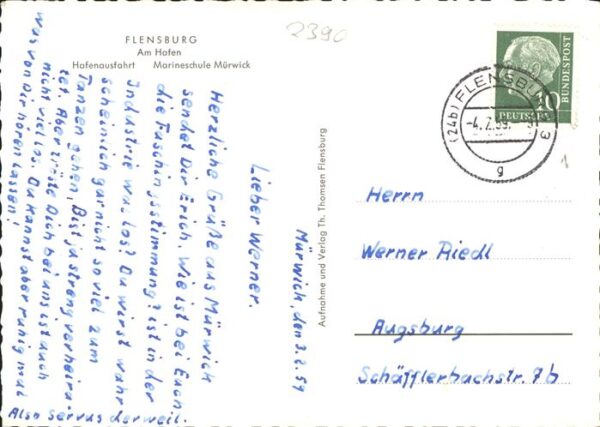 FLENSBURG
Am Hafen
Hafenausfahrt Marineschule Mürwick
2390
DEUTSCHE
BUNDESPOST
10
(24b) FLENSBURG 3
-4.2.59.
g
1
Aufnahme und Verlag Th. Thomsen Flensburg
Mürwick, den 3.2.59
Lieber Werner.
Herzliche Grüße aus Mürwick
sendet Dir Erich. Wie ist bei Euch
die Faschingsstimmung? ist in der
Industrie was los? Du wirst wahr
scheinlich gar nicht so viel zum
Tanzen gehen, Bist ja streng verheira
tet. Aber tröste Dich bei uns ist auch
nicht viel los. Du kannst aber ruhig mal
was von Dir hören lassen!
Also servus derweil.
Herrn
Werner Riedl
Augsburg
Schäfflerbachstr. 7b